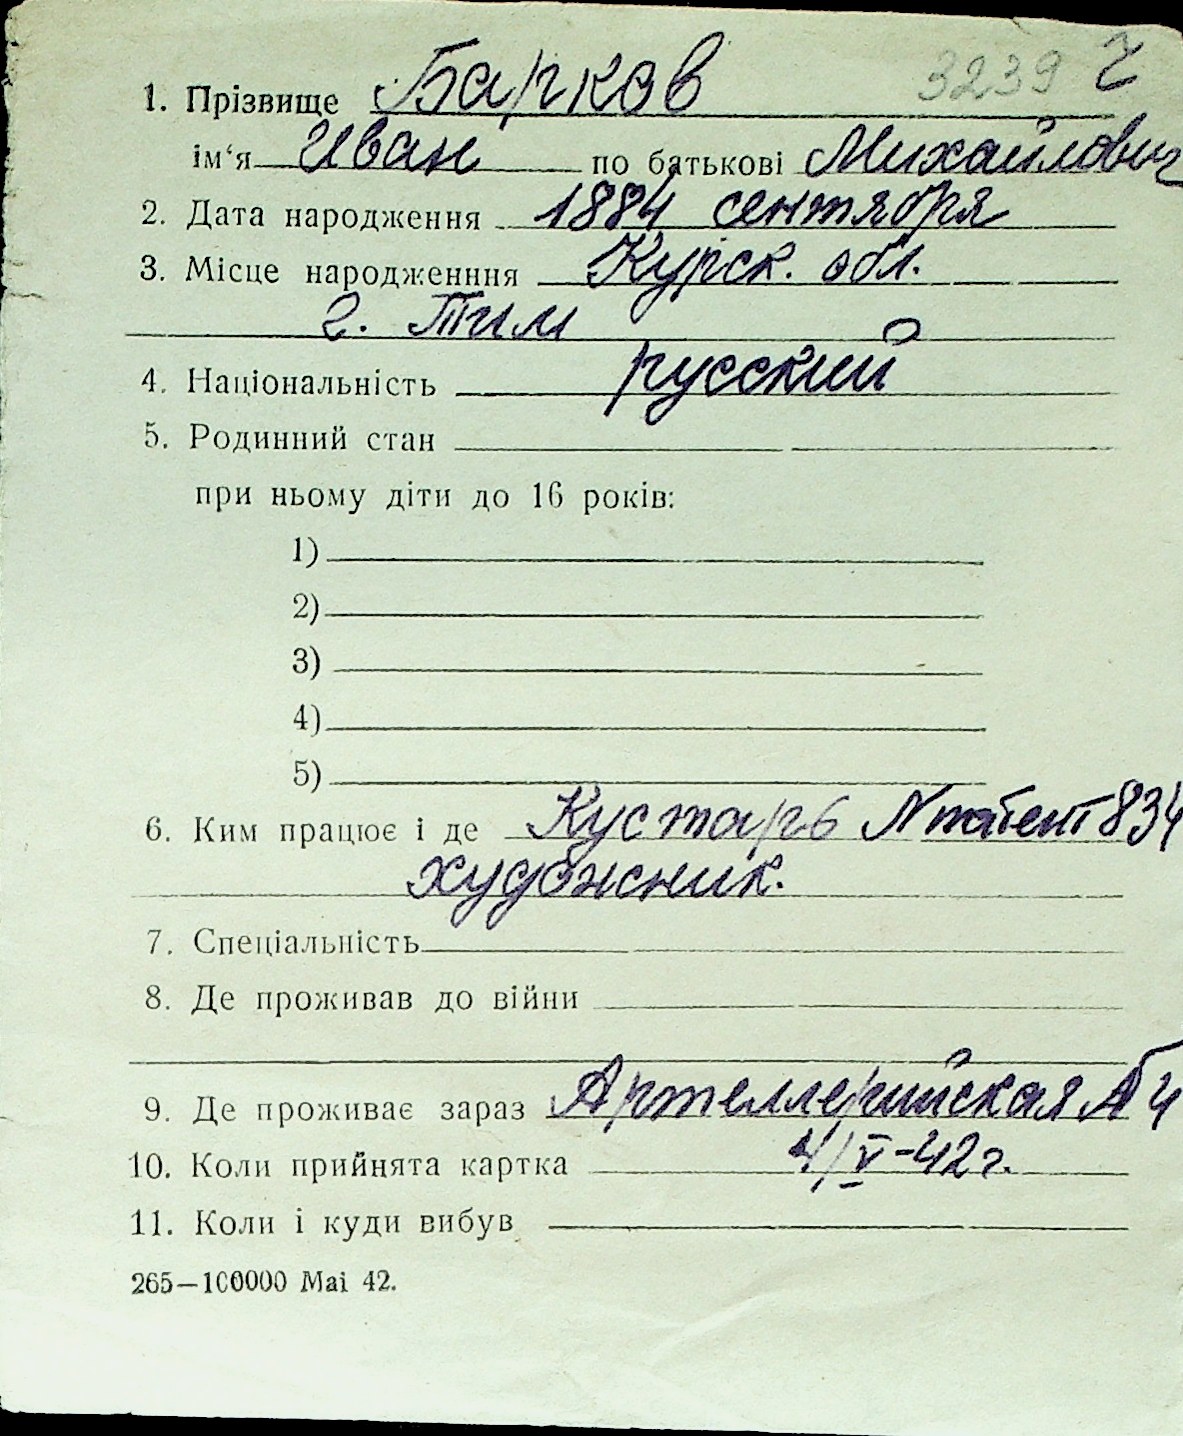 3239 ч
1. Прізвище Барков
ім'я Иван по батькові Михайлович
2. Дата народження 1884 сентября
3. Місце народженння Курск. обл.
г. Тим
4. Національність русский
5. Родинний стан
при ньому діти до 16 років:
1)
2)
3)
4)
5)
6. Ким працює і де Кустарь N патент 834
художник.
7. Спеціальність
8. Де проживав до війни
9. Де проживає зараз Артеллерийская
10. Коли прийнята картка 4/V-42 г.
11. Коли і куди вибув
265—100000 Mai 42.